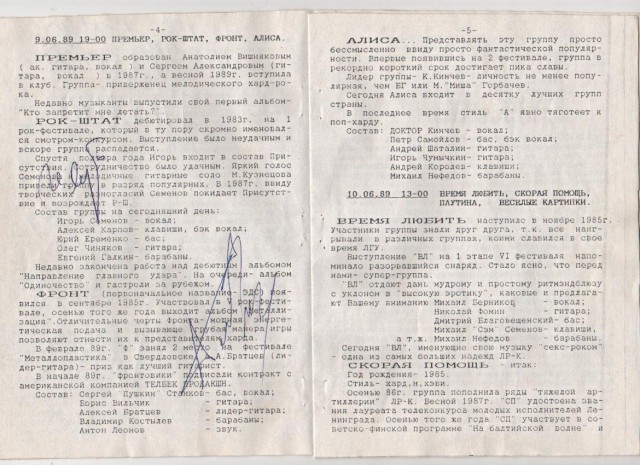 -4-
9.06.89 19-00 ПРЕМЬЕР, РОК-ШТАТ, ФРОНТ, АЛИСА.
ПРЕМЬЕР образован Анатолием Вишняковым
( ак. гитара, вокал ) и Сергеем Александровым(ги-
тара, вокал ) в 1987г., а весной 1989г. вступила
в клуб. Группа- приверженец мелодического хард-ро-
ка.
Недавно музыканты выпустили свой первый альбом-
"Кто запретит мне летать?"
РОК-ШТАТ дебютировал в 1983г. на 1
рок-фестивале, который в ту пору скромно именовал-
ся смотром-конкурсом. Выступление было неудачным и
вскоре группа распадается.
Спустя года Игорь входит в состав При-
сутствия. Сотрудничество было удачным. Яркий голос
Семенова, мелодичные гитарные соло М.Кузнецова
группу в разряд популярных. В 1987г. ввиду
творческих разногласий Семенов покидает Присутст-
вие и возрождает Р-Ш.
Состав группы на сегодняшний день:
Игорь Семенов - вокал;
Алексей Карпов- клавиши, бэк вокал;
Юрий Ераменко - бас;
Олег Чиняков - гитара;
Евгений Галкин- барабаны.
Недавно закончена работа над дебютным альбомом
"Направление главного удара". На очереди- альбом
"Одиночество" и гастроли за рубежом.
ФРОНТ (первоначальное название- ЭДС) появ-
ился в сентябре 1985г. Участвовал в рок-фести-
вале, осенью того же года выходит альбом "Металли-
зация". Отличительные черты Фронта- мощная энерге-
тическая подача и вызывающе грубая манера игры
позволяют отнести их к представителям харда.
В феврале 89г. "Ф" занял 2 место на фестивале
"Металлопластика" в Свердловске, А.Братцев (ли-
дер-гитара)- приз как лучший гитарист.
В начале 89г. "фронтовики" подписали контракт с
американской компанией ТЕЛБЕК ПРОДАКШН.
Состав: Сергей "Пушкин" Станков- бас, вокал;
Борис Вильчик - гитара;
Алексей Братцев - лидер-гитара;
Владимир Костылев - барабаны;
Антон Леонов - звук.
-5-
АЛИСА... Представлять эту группу просто
бессмысленно ввиду просто фантастической популярно-
сти. Впервые появившись на 2 фестивале, группа в
рекордно короткий срок достигает пика славы.
Лидер группы- К.Кинчев- личность не менее попу-
лярная, чем БГ или М."Миша" Горбачев.
Сегодня Алиса входит в десятку лучших групп
страны.
В последнее время стиль "А" явно тяготеет к
поп-харду.
Состав: ДОКТОР Кинчев - вокал;
Петр Самойлов - бас, бэк вокал;
Андрей Шаталин- гитара;
Игорь Чумычкин- гитара;
Андрей Королев- клавиши;
Михаил Нефедов- барабаны.
10.06.89 13-00 ВРЕМЯ ЛЮБИТЬ, СКОРАЯ ПОМОЩЬ,
ПАУТИНА, ВЕСЕЛЫЕ КАРТИНКИ.
ВРЕМЯ ЛЮБИТЬ наступило в ноябре 1985г.
Участники группы знали друг друга, т.к. все наиг-
рывали в различных группах, коими славился в свое
время ЛГУ.
Выступление "ВЛ" на 1 этапе VI фестиваля напо-
минало разорвавшийся снаряд. Стало ясно, что перед
нами- супер-группа.
"ВЛ" отдают дань мудрому и простому ритмэндблюзу
с уклоном в "высокую эротику", каковые и предлага-
ют Вашему вниманию Михаил Берников - вокал;
Николай Фомин - гитара;
Дмитрий Благовещенский- бас;
Михаил "Сэм" Семенов- клавиши,
а т.к. Михаил Нефедов - барабаны.
Сегодня "ВЛ", именующие свою музыку "секс-роком"
- одна из самых больших надежд ЛР-К.
СКОРАЯ ПОМОЩЬ - итак:
Год рождения- 1985.
Стиль- хард,н.хэви.
Осенью 86г. группа пополнила ряды "тяжелой ар-
тиллерии" ЛР-К. Весной 1987г. "СП" удостоена зва-
ния лауреата телеконкурса молодых исполнителей Ле-
нинграда. Осенью того же года "СП" участвует в со-
ветско-финской программе "На балтийской волне" и